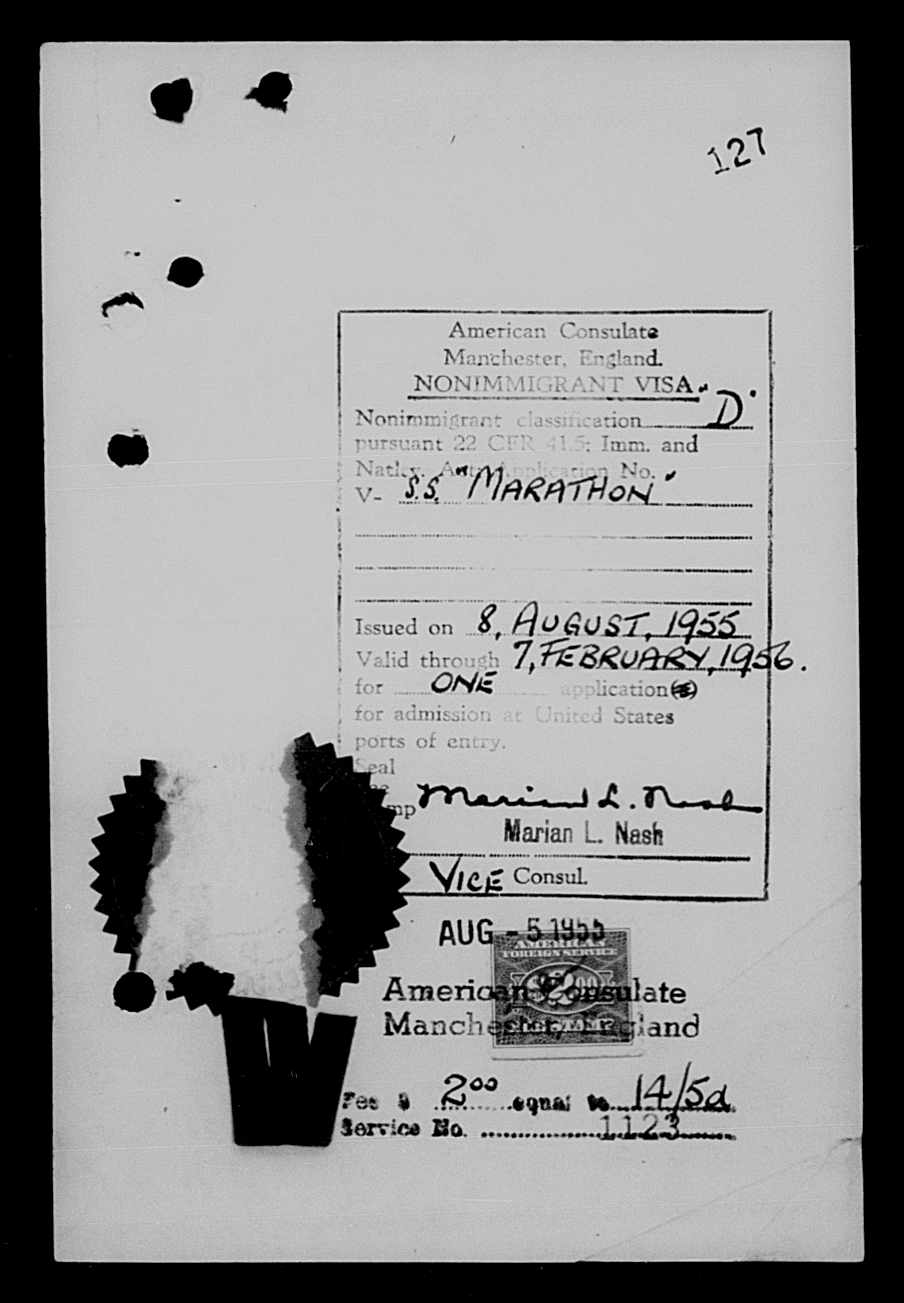 127
American Consulate
Manchester, England.
NONIMMIGRANT VISA
Nonimmigrant classification "D"
pursuant 22 CFR 41.5; Imm. and
Natlty. Act; Application No.
V- S.S. "MARATHON"
Issued on 8, AUGUST, 1955
Valid through 7, FEBRUARY, 1956.
for ONE application(s)
for admission at United States
ports of entry.
Seal
Marian L. Nash
Marian L. Nash
VICE Consul.
AUG - 5 1955
AMERICAN
FOREIGN SERVICE
$2.00
American Consulate
Manchester, England
Fee $ 2.00 equal to 14/5d
Service No. 1123